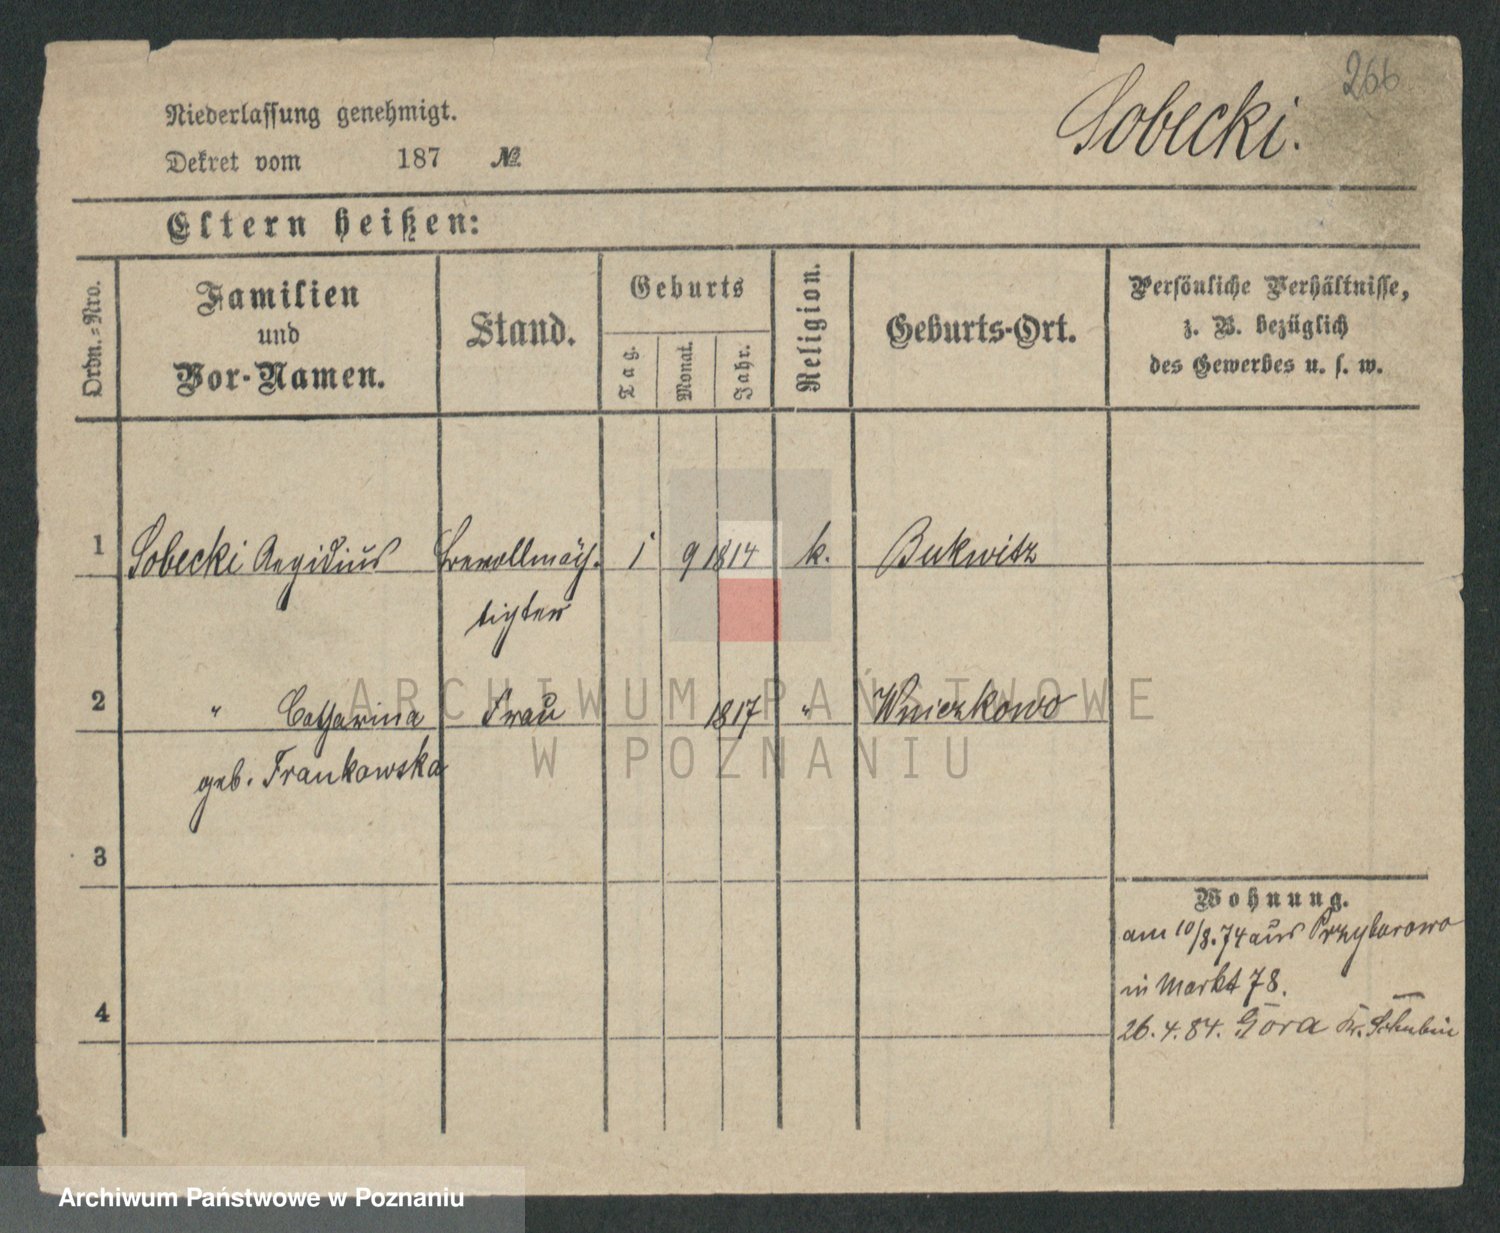 266
Sobecki.
Niederlassung genehmigt.
Dekret vom 187 №
Eltern heißen:
Ordn.-Nro.
Familien
und
Vor-Namen.
Stand.
Geburts
Tag.
Monat.
Jahr.
Religion.
Geburts-Ort.
Persönliche Verhältnisse,
z. B. bezüglich
des Gewerbes u. s. w.
1 Sobecki Aegidius bevollmäch. 1 9 1814 k. Bukwitz
tigter
2 " Catharina Frau 1817 " Wnieczkowo
geb. Frankowska
3
Wohnung.
am 10/8. 74 aus Przyborowo
in Markt 78.
4
26. 4. 84. Góra Kr. Schubin
ARCHIWUM PAŃSTWOWE
W POZNANIU
Archiwum Państwowe w Poznaniu